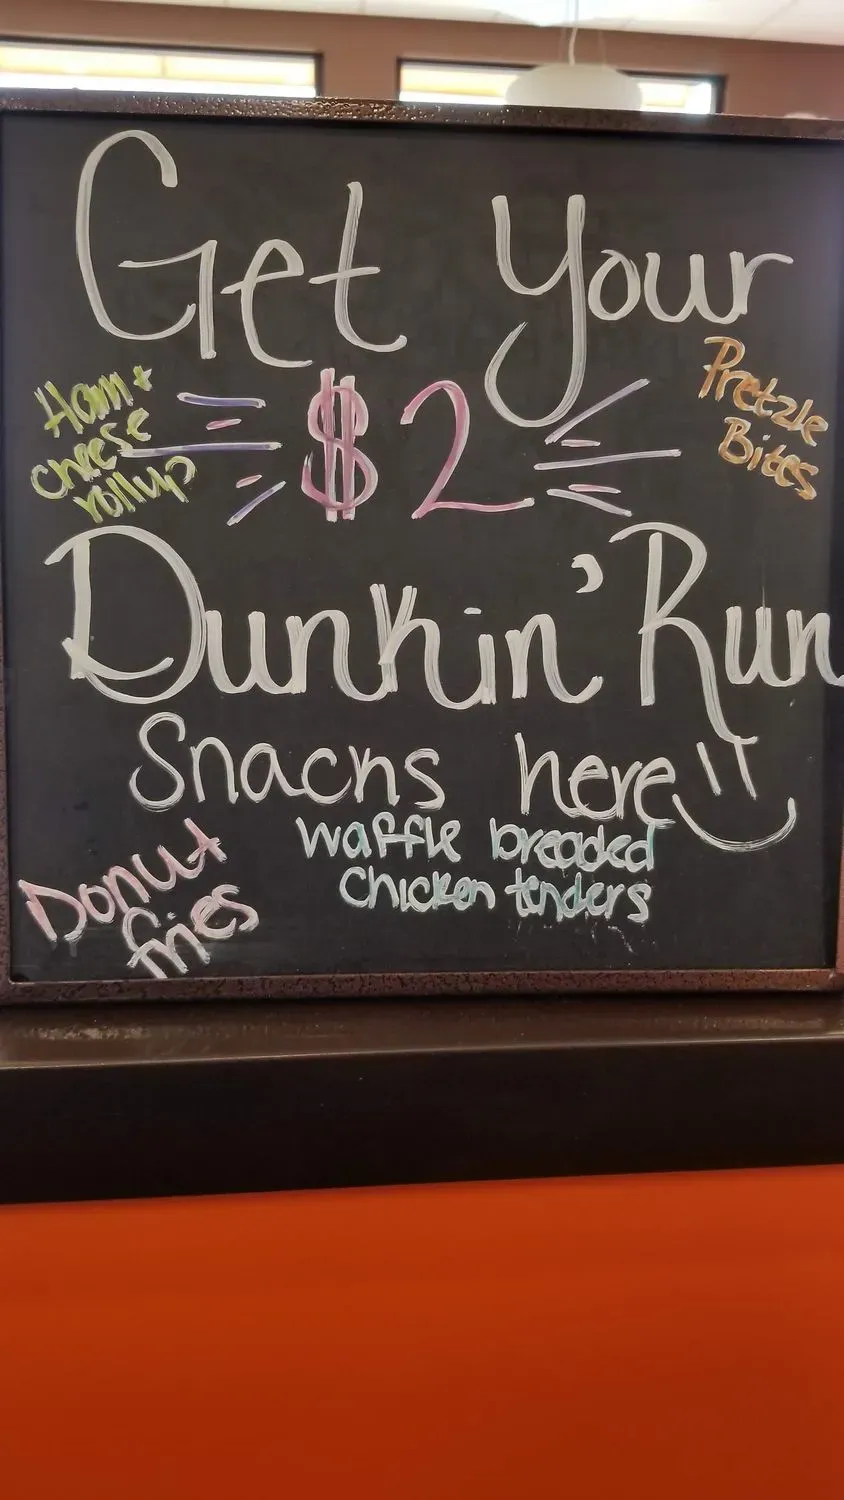 Get Your
Ham +
cheese
rollup
$2
Pretzle
Bites
Dunkin' Run
Snacks here
waffle breaded
Chicken tenders
Donut
fries